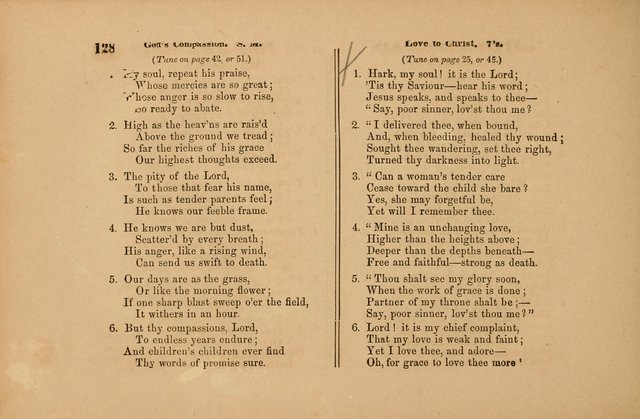 128
God's Compassion. S. M.
(Tune on page 42, or 51.)
1. My soul, repeat his praise,
Whose mercies are so great;
Whose anger is so slow to rise,
So ready to abate.
2. High as the heav'ns are rais'd
Above the ground we tread;
So far the riches of his grace
Our highest thoughts exceed.
3. The pity of the Lord,
To those that fear his name,
Is such as tender parents feel;
He knows our feeble frame.
4. He knows we are but dust,
Scatter'd by every breath;
His anger, like a rising wind,
Can send us swift to death.
5. Our days are as the grass,
Or like the morning flower;
If one sharp blast sweep o'er the field,
It withers in an hour.
6. But thy compassions, Lord,
To endless years endure;
And children's children ever find
Thy words of promise sure.
Love to Christ. 7's.
(Tune on page 25, or 45.)
1. Hark, my soul! it is the Lord;
'Tis thy Saviour—hear his word;
Jesus speaks, and speaks to thee—
"Say, poor sinner, lov'st thou me?
2. "I delivered thee, when bound,
And, when bleeding, healed thy wound;
Sought thee wandering, set thee right,
Turned thy darkness into light.
3. "Can a woman's tender care
Cease toward the child she bare?
Yes, she may forgetful be,
Yet will I remember thee.
4. "Mine is an unchanging love,
Higher than the heights above;
Deeper than the depths beneath—
Free and faithful—strong as death.
5. "Thou shalt see my glory soon,
When the work of grace is done;
Partner of my throne shalt be;—
Say, poor sinner, lov'st thou me?"
6. Lord! it is my chief complaint,
That my love is weak and faint;
Yet I love thee, and adore—
Oh, for grace to love thee more!